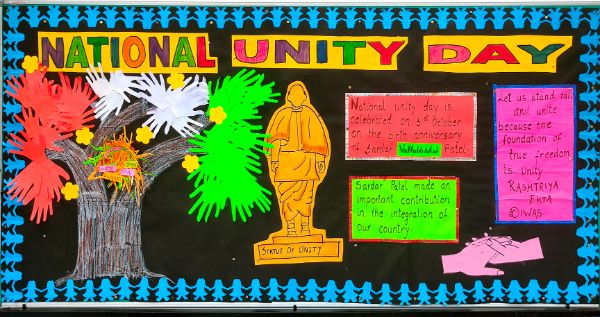 NATIONAL UNITY DAY
National unity day is
celebrated on 31st October
on the birth anniversary
of Sardar Vallabhbhai Patel.
Sardar Patel made an
important contribution
in the integration of
our country.
Let us stand tall
and unite
because the
foundation of
true freedom
is Unity
RASHTRIYA
EKTA
DIWAS
STATUE OF UNITY